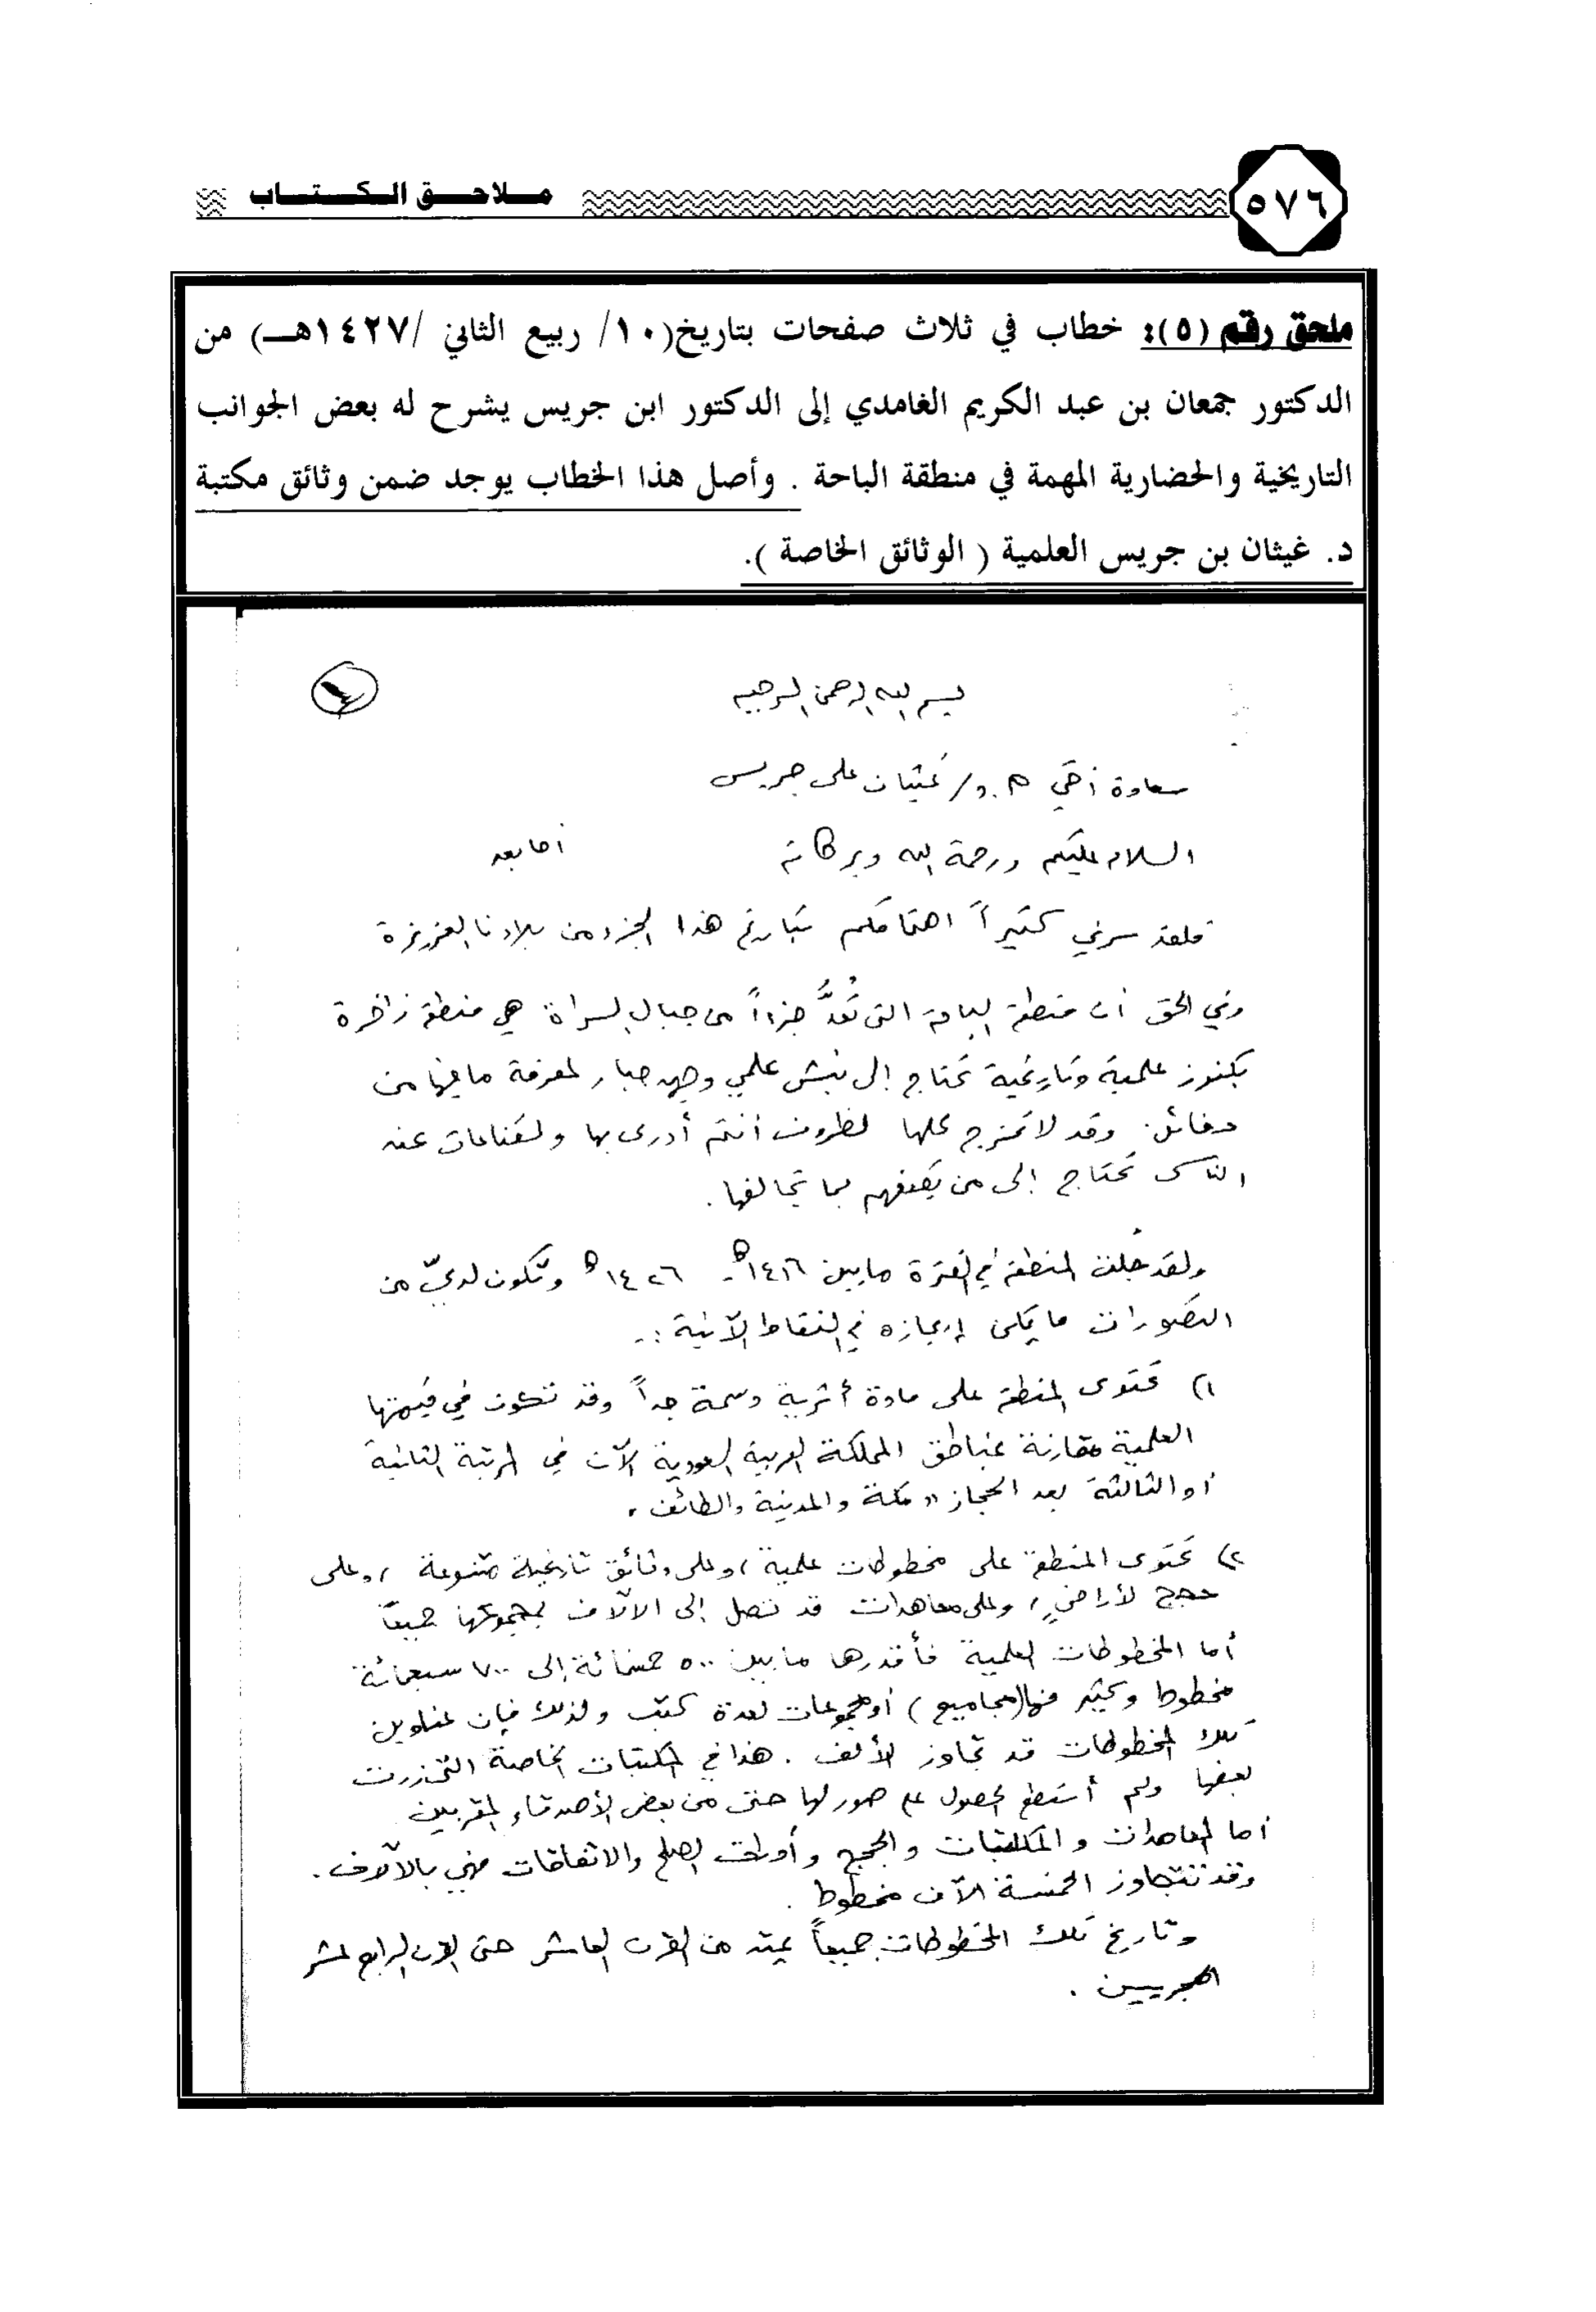 ٥٧٦
ملاحق الكتاب
ملحق رقم (٥): خطاب في ثلاث صفحات بتاريخ(١٠/ ربيع الثاني /١٤٢٧هـ) من
الدكتور جمعان بن عبد الكريم الغامدي إلى الدكتور ابن جريس يشرح له بعض الجوانب
التاريخية والحضارية المهمة في منطقة الباحة . وأصل هذا الخطاب يوجد ضمن وثائق مكتبة
د. غيثان بن جريس العلمية ( الوثائق الخاصة ).
بسم الله الرحمن الرحيم
سعادة أخي أ.د/ غيثان علي جريس
السلام عليكم ورحمة الله وبركاته أما بعد
فلقد سرني كثيراً اهتمامكم بتاريخ هذا الجزء من بلادنا العزيزة
وفي الحق أن منطقة الباحة التي تُعدُّ جزءاً من جبال السراة هي منطقة زاخرة
بكنوز علمية وتاريخية تحتاج إلى نبش علمي وجهد جبار لمعرفة ما فيها من
دفائن. وقد لا تخرج كلها لظروف أنتم أدرى بها ولقناعات عند
الناس تحتاج إلى من يقنعهم بما يخالفها.
ولقد جُلت المنطقة في الفترة ما بين ١٤١٦هـ - ١٤٢٦هـ وتكون لديّ من
التصورات ما يمكن إيجازه في النقاط الآتية :-
١) تحتوى المنطقة على مادة أثرية دسمة جداً وقد تكون في قيمتها
العلمية مقارنة بمناطق المملكة العربية السعودية الآن في المرتبة الثانية
أو الثالثة بعد الحجاز " مكة والمدينة والطائف .
٢) تحتوى المنطقة على مخطوطات علمية، وعلى وثائق تاريخية متنوعة ، وعلى
حجج لأراضٍ، وعلى معاهدات قد تصل إلى الآلاف بمجموعها جميعاً
أما المخطوطات العلمية فأقدرها ما بين ٥٠٠ خمسمائة إلى ٧٠٠ سبعمائة
مخطوط وكثير منها(مجاميع ) أو مجموعات لعدة كتب ولذلك فإن عناوين
تلك المخطوطات قد تجاوز الألف . هذا في المكتبات الخاصة التي زرت
بعضها ولم أستطع الحصول على صور لها حتى من بعض الأصدقاء المقربين
أما المعاهدات والمكاتبات والحجج وأوراق الصلح والاتفاقات فهي بالآلاف .
وقد تتجاوز الخمسة الآف مخطوط .
وتاريخ تلك المخطوطات جميعاً يمتد من القرن العاشر حتى القرن الرابع عشر
الهجريين .